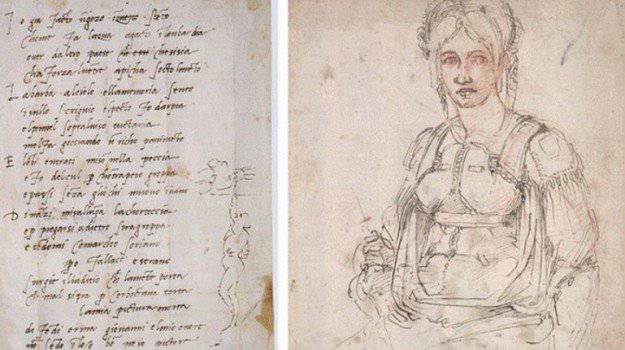 I o gia facto ngozo
chome fa lacqua agacti ilombardia
over daltro paese che
cha forza luetre apicha socto lmeto
L abarba alcielo ellamemoria sento
i nsullo scrignio elpecto fo darpia
e lpennel sopraluiso tuctauia
mel fa gocciando u richo pauimeto
E lobi entrati miso nella peccia
e fo del cul p chotrapeso groppa
e passi seza gliochi muouo iuano
D inazi misalluga lachorteccia
e p piegarsi adietro siragroppa
e tedomi comarcho soriano
po fallace e strano
surgie iliuditio che lamete porta
che mal p cerboctana torta
lamia pictura morta
di fedi orma giouanni elmio onore
pictore